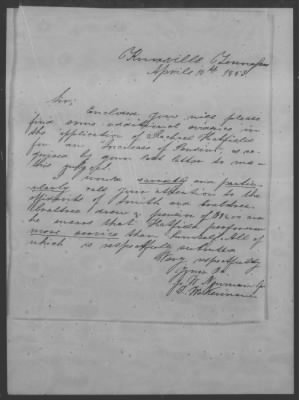 Knoxville Tennessee
April 12th 1853
Sir,
Enclosed you will please
find some additional evidence in
the application of Rachael Hatfield
for an Increase of Pension, as re-
quired by your last letter to me
this subject.
I would and partic-
ularly call your attention to the
affidavits of Smith and
drew a pension of and
he swears that Hatfield performed
more service than himself. All of
which is respectfully submitted
Very respectfully
Yours &c